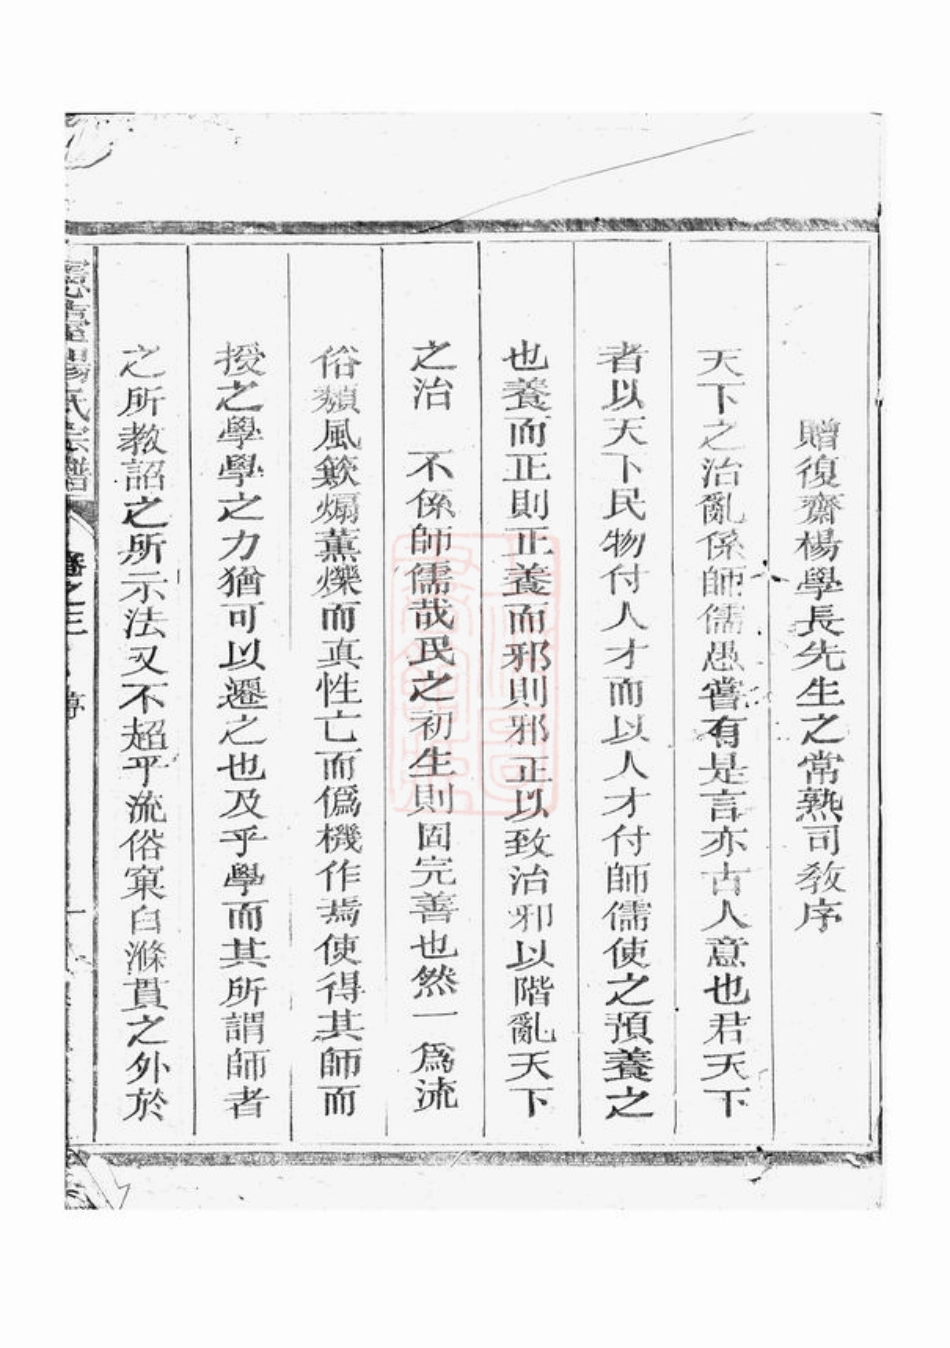 贈復齋楊學長先生之常熟司敎序
天下之治亂係師儒愚嘗有是言亦古人意也君天下
者以天下民物付人才而以人才付師儒使之預養之
也養而正則正養而邪則邪正以致治邪以階亂天下
之治　不係師儒哉民之初生則固完善也然一爲流
俗纇風歘煽薰爍而真性亡而僞機作焉使得其師而
授之學學之力猶可以遷之也及乎學而其所謂師者
之所教詔之所示法又不超乎流俗窠臼滌貫之外於
楊氏宗譜
卷之三